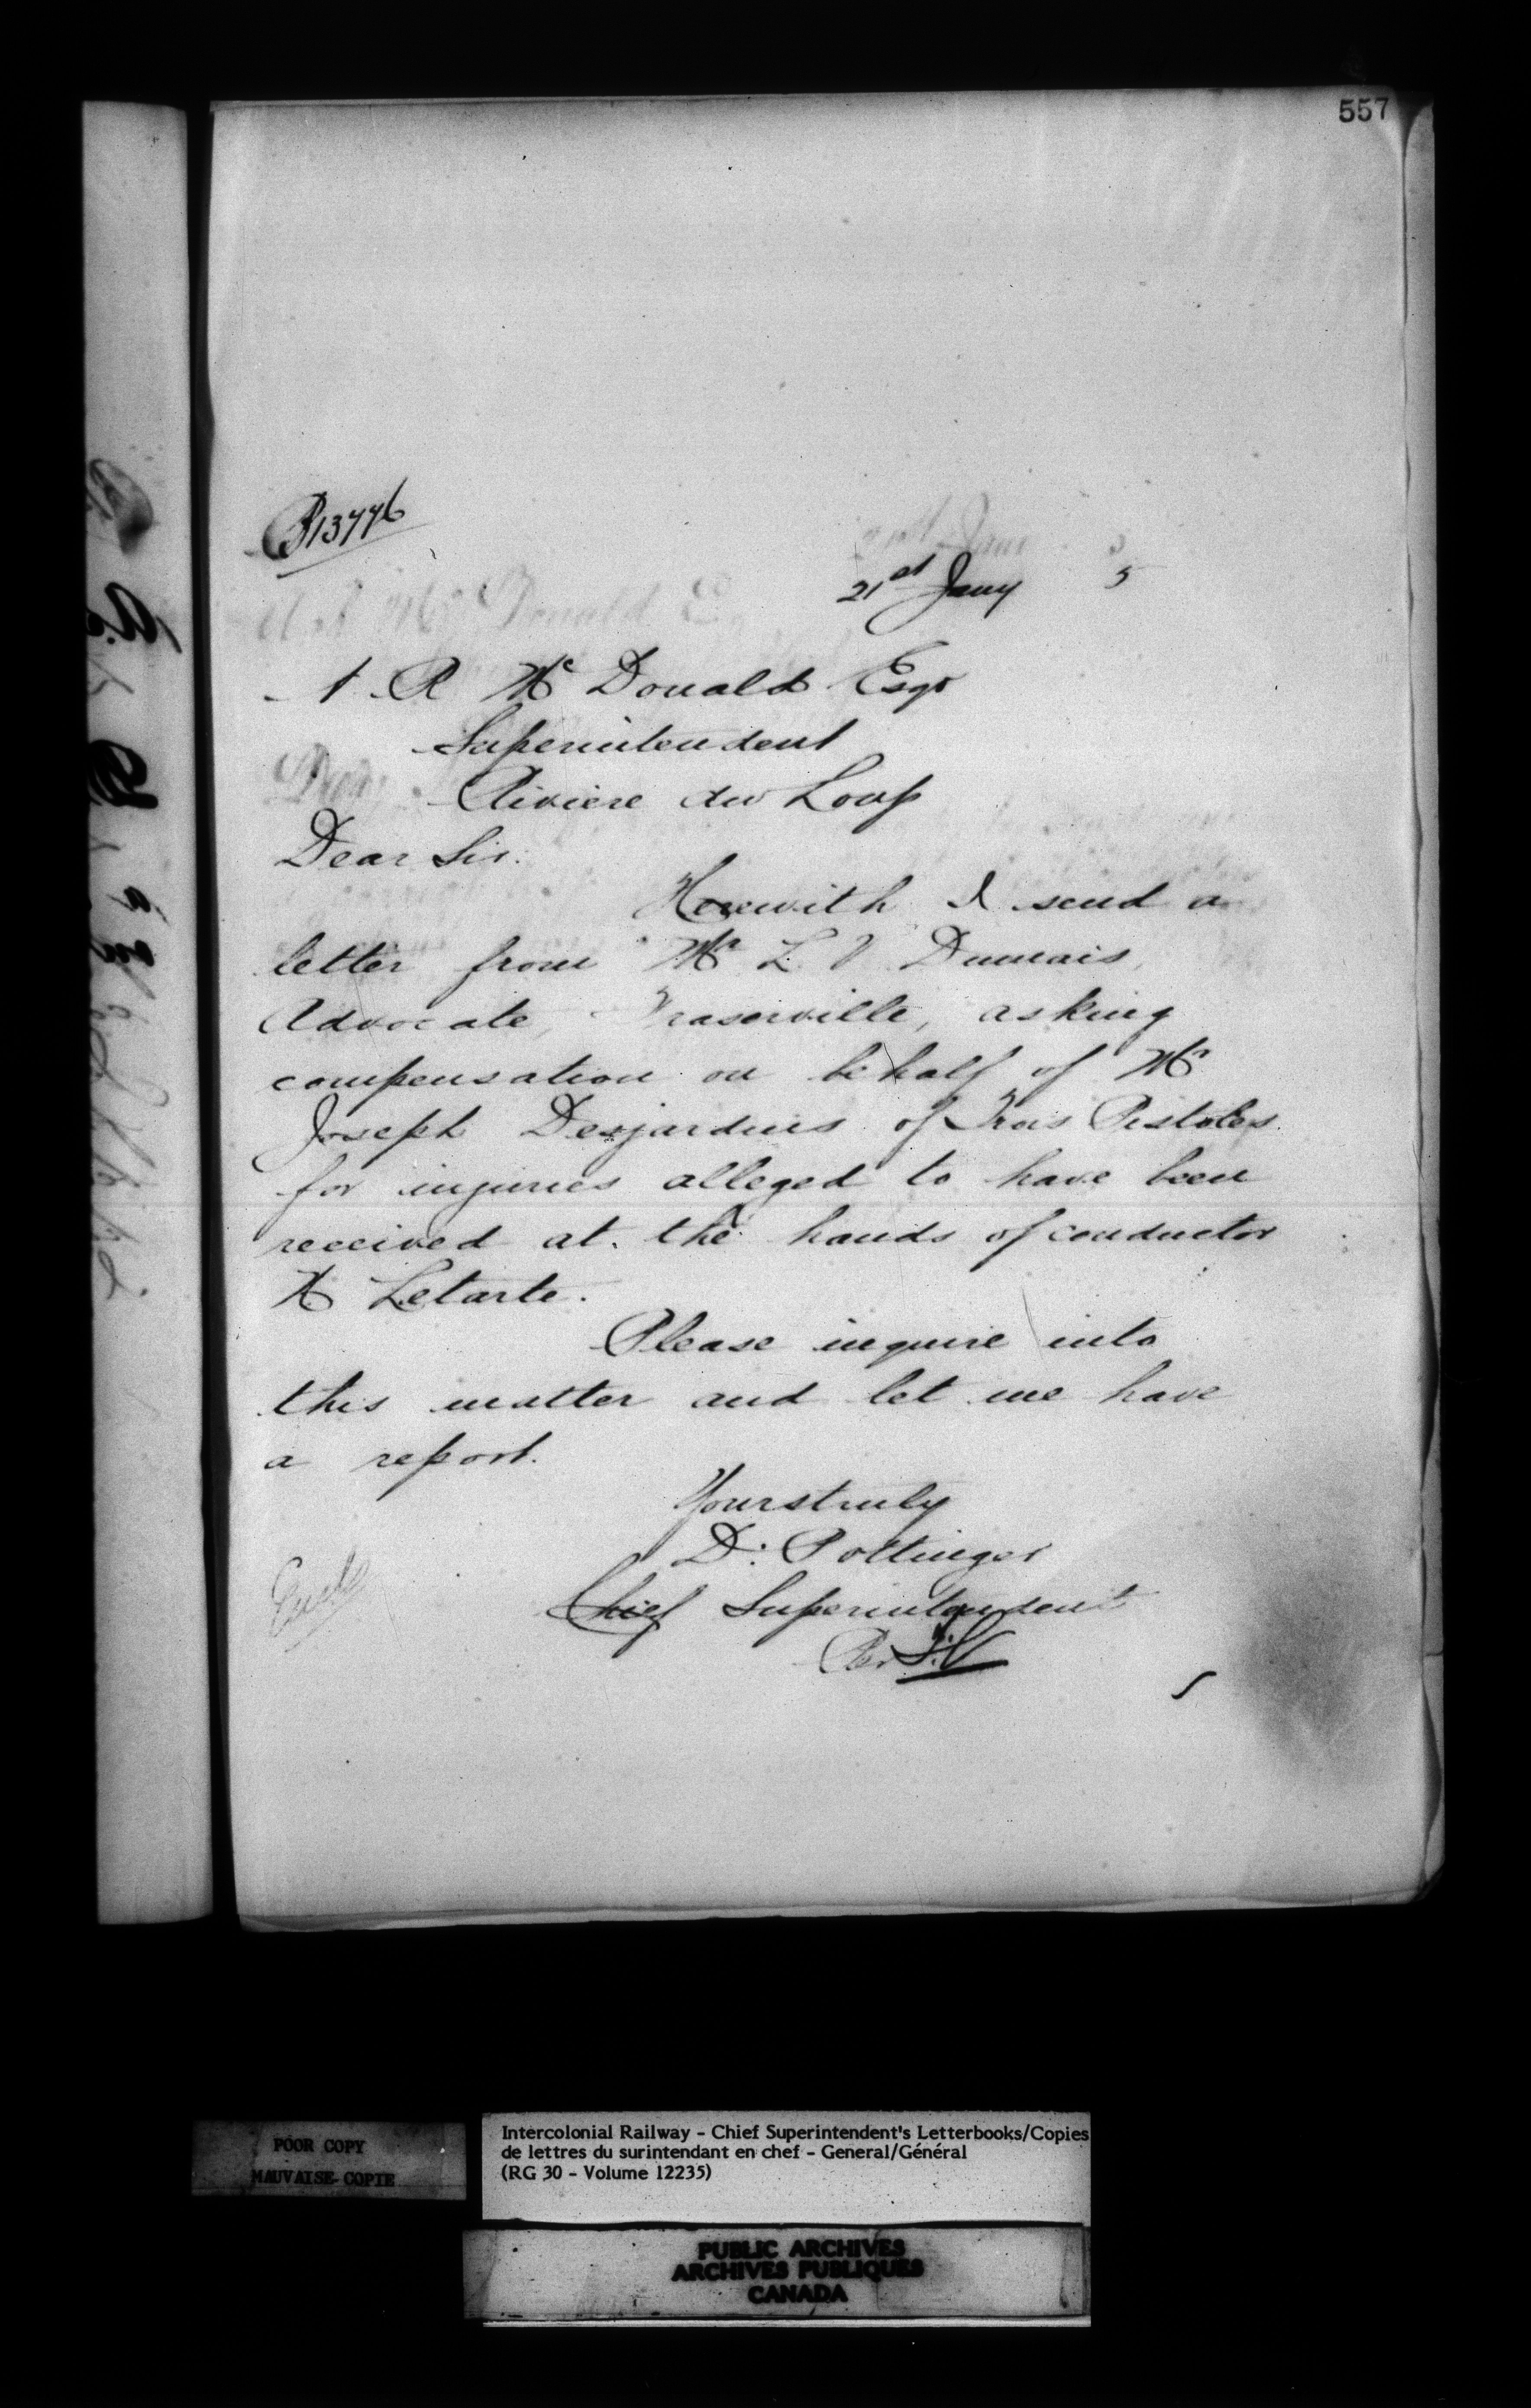 557
P13776
21st Jany 5
A R McDonald Esqr
Superintendent
Riviere du Loup
Dear Sir.
Herewith I send a
letter from Mr L. V Dumais,
Advocate, Fraserville, asking
compensation on behalf of Mr
Joseph Desjardins of Trois Pistoles
for injuries alleged to have been
received at the hands of conductor
H Letarte.
Please inquire into
this matter and let me have
a report.
Yours truly
D. Pottinger
Chief Superintendent
Per
Encls
POOR COPY
MAUVAISE COPIE
Intercolonial Railway - Chief Superintendent's Letterbooks/Copies
de lettres du surintendant en chef - General/Général
(RG 30 - Volume 12235)
PUBLIC ARCHIVES
ARCHIVES PUBLIQUES
CANADA